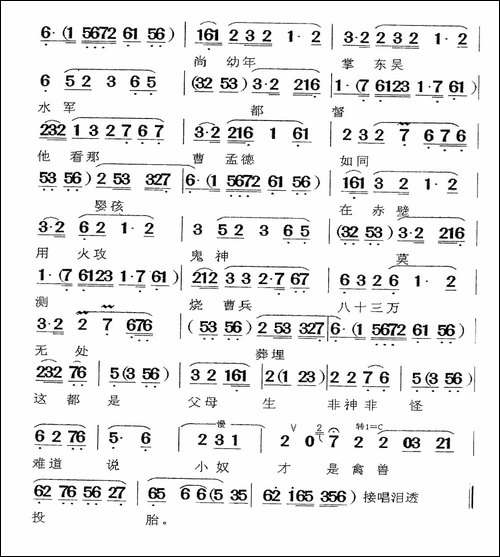 6·(1 5672 61 56) | 161 2 3 2 1·2 | 3·2 2 3 2 1·2 |
尚幼年 掌东吴
6 5 2 3 6 5 | (32 53) 3·2 216 | 1·(7 6123 1·7 61) |
水军 都 督
232 1 3 2 7 6 7 | 3·2 216 1 61 | 2 3 2 7 6 7 6 |
他看那 曹孟德 如同
53 56) 2 53 327 | 6·(1 5672 61 56) | 161 3 2 1·2 |
婴孩 在赤壁
3·2 6 2 1·2 | 3 5 2 3 6 5 | (32 53) 3·2 216 |
用火攻 鬼神 莫
1·(7 6123 1·7 61) | 212 3 3 2·7 67 | 6 3 2 6 1·2 |
测 烧曹兵 八十三万
3·2 2 7 676 | (53 56) 2 53 327 | 6·(1 5672 61 56) |
无处 葬埋
232 76 | 5(3 56) | 3 2 161 | 2(1 23) | 2 2 7 6 | 5(3 56) |
这都是 父母生 非神非怪
6 2 76 | 5· 6 | 慢 2 3 1 | V 2 0 2 7 转1=C 2 2 03 21 |
难道说 小奴 才是禽兽
62 76 56 27 | 65 6 6(5 35 | 62 i65 356) 接唱泪透 ‖
投 胎。